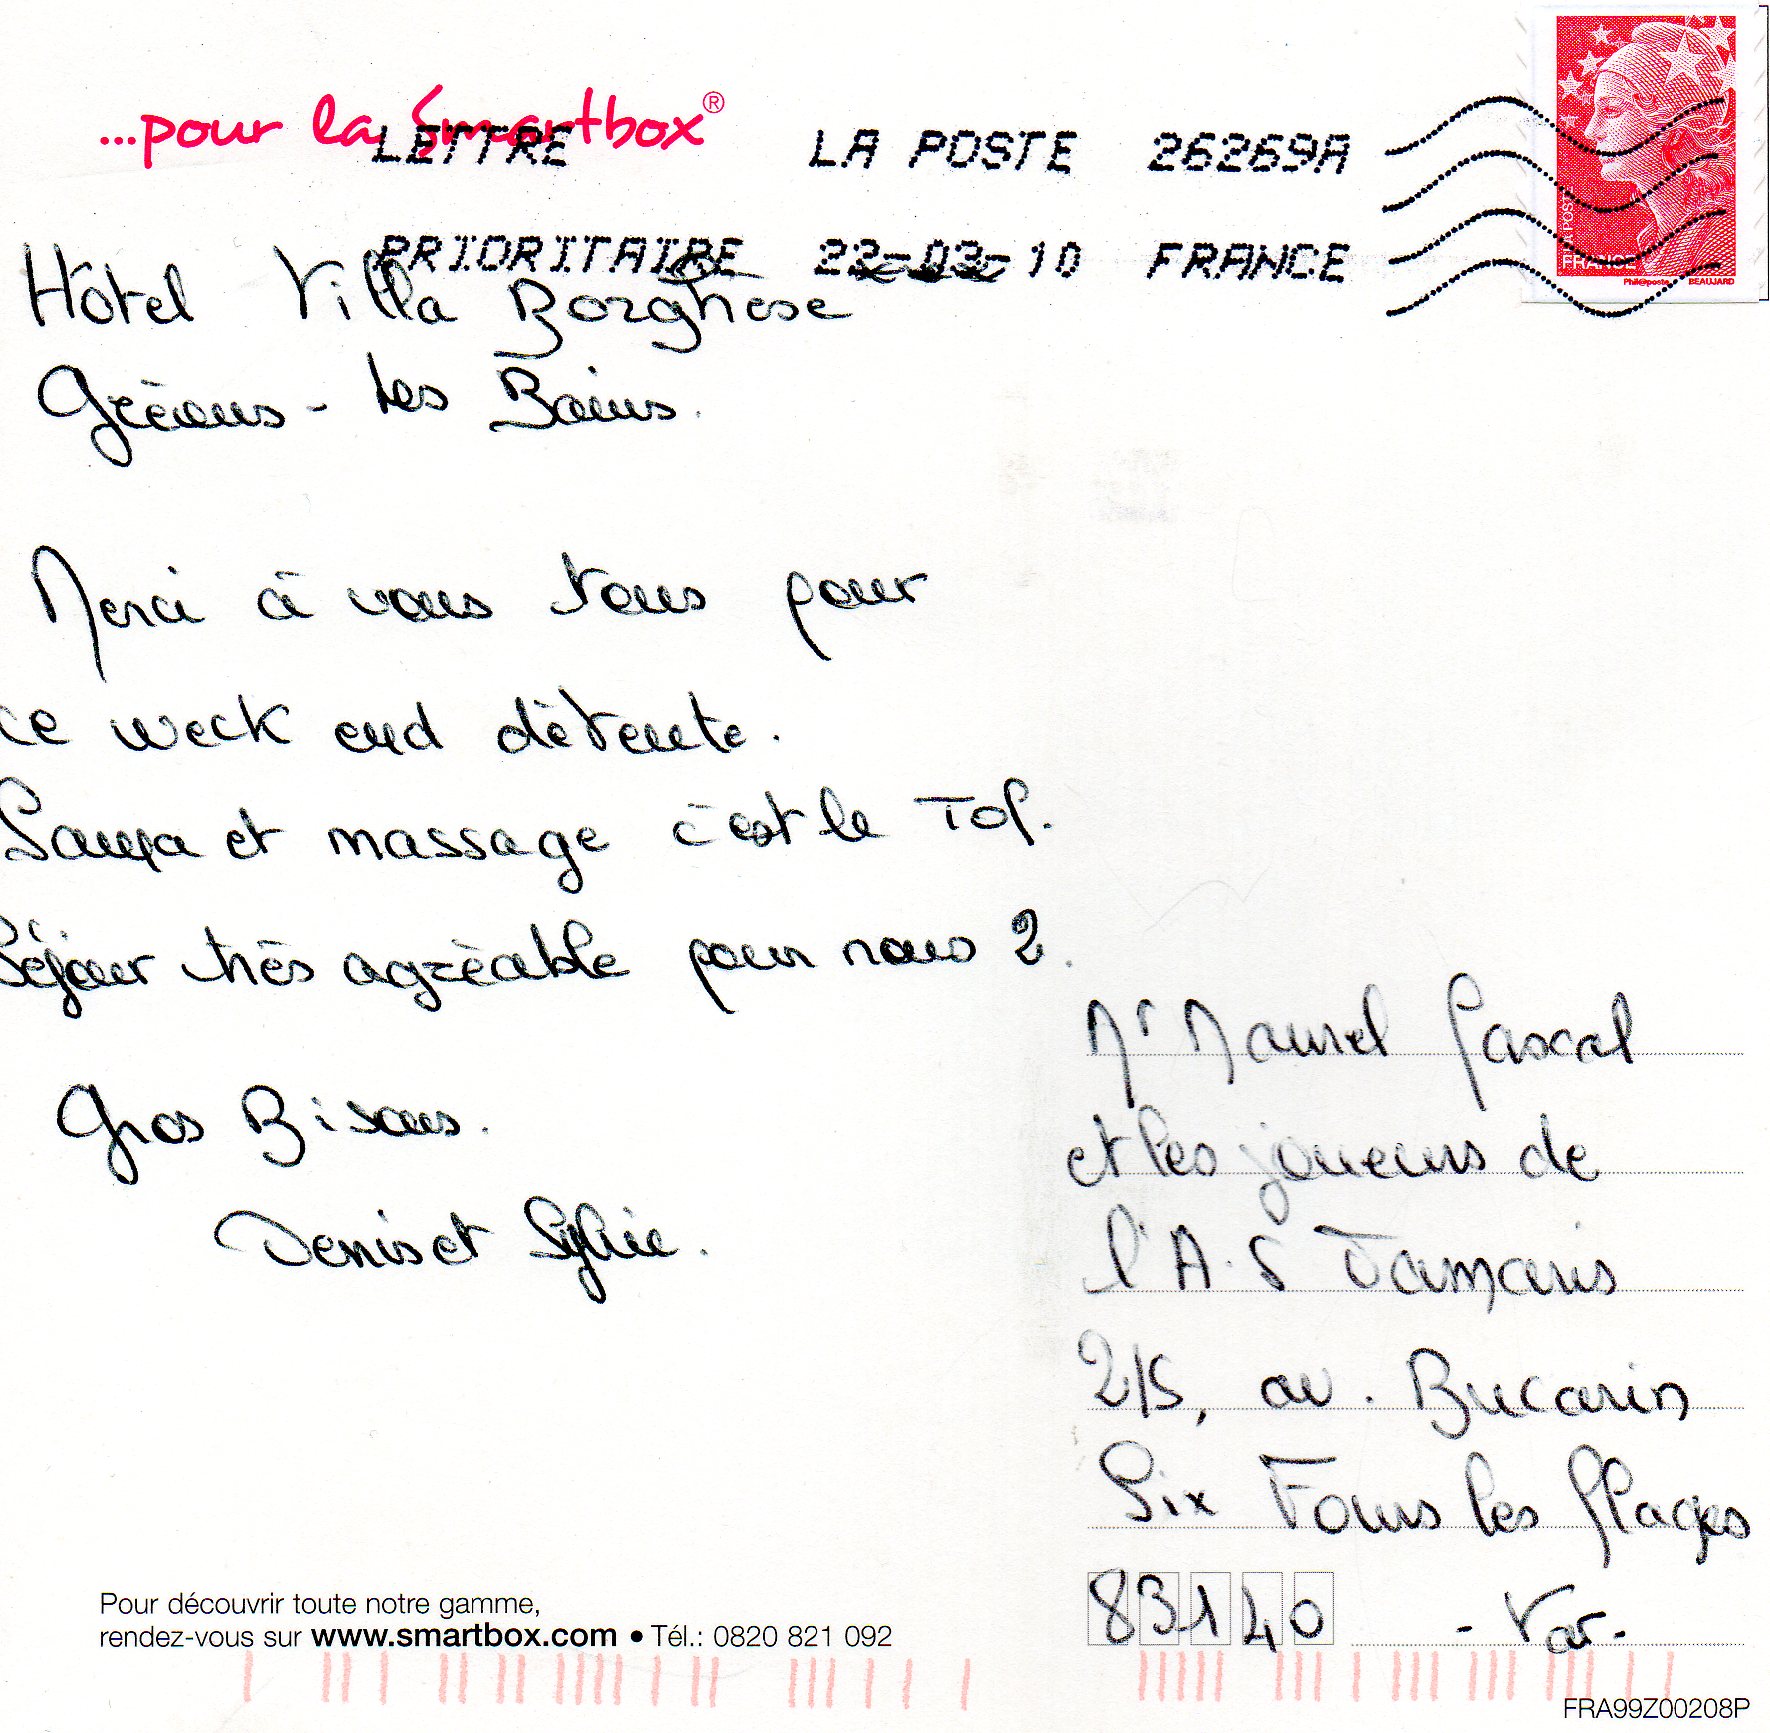 ...pour la Smartbox®
LETTRE LA POSTE 26269A
PRIORITAIRE 22-03-10 FRANCE
FRANCE
Phil@poste BEAUJARD
Hôtel Villa Borghese
Gréoux - les Bains.
Merci à vous tous pour
ce week end détente.
Sauna et massage c'est le Top.
Séjour très agréable pour nous 2.
Gros Bisous.
Denis et Sylvie.
Mr Maurel Pascal
et les joueurs de
l'A.S Tamaris
215, av. Bucarin
Six Fours les Plages
83140 - Var.
Pour découvrir toute notre gamme,
rendez-vous sur www.smartbox.com • Tél.: 0820 821 092
FRA99Z00208P